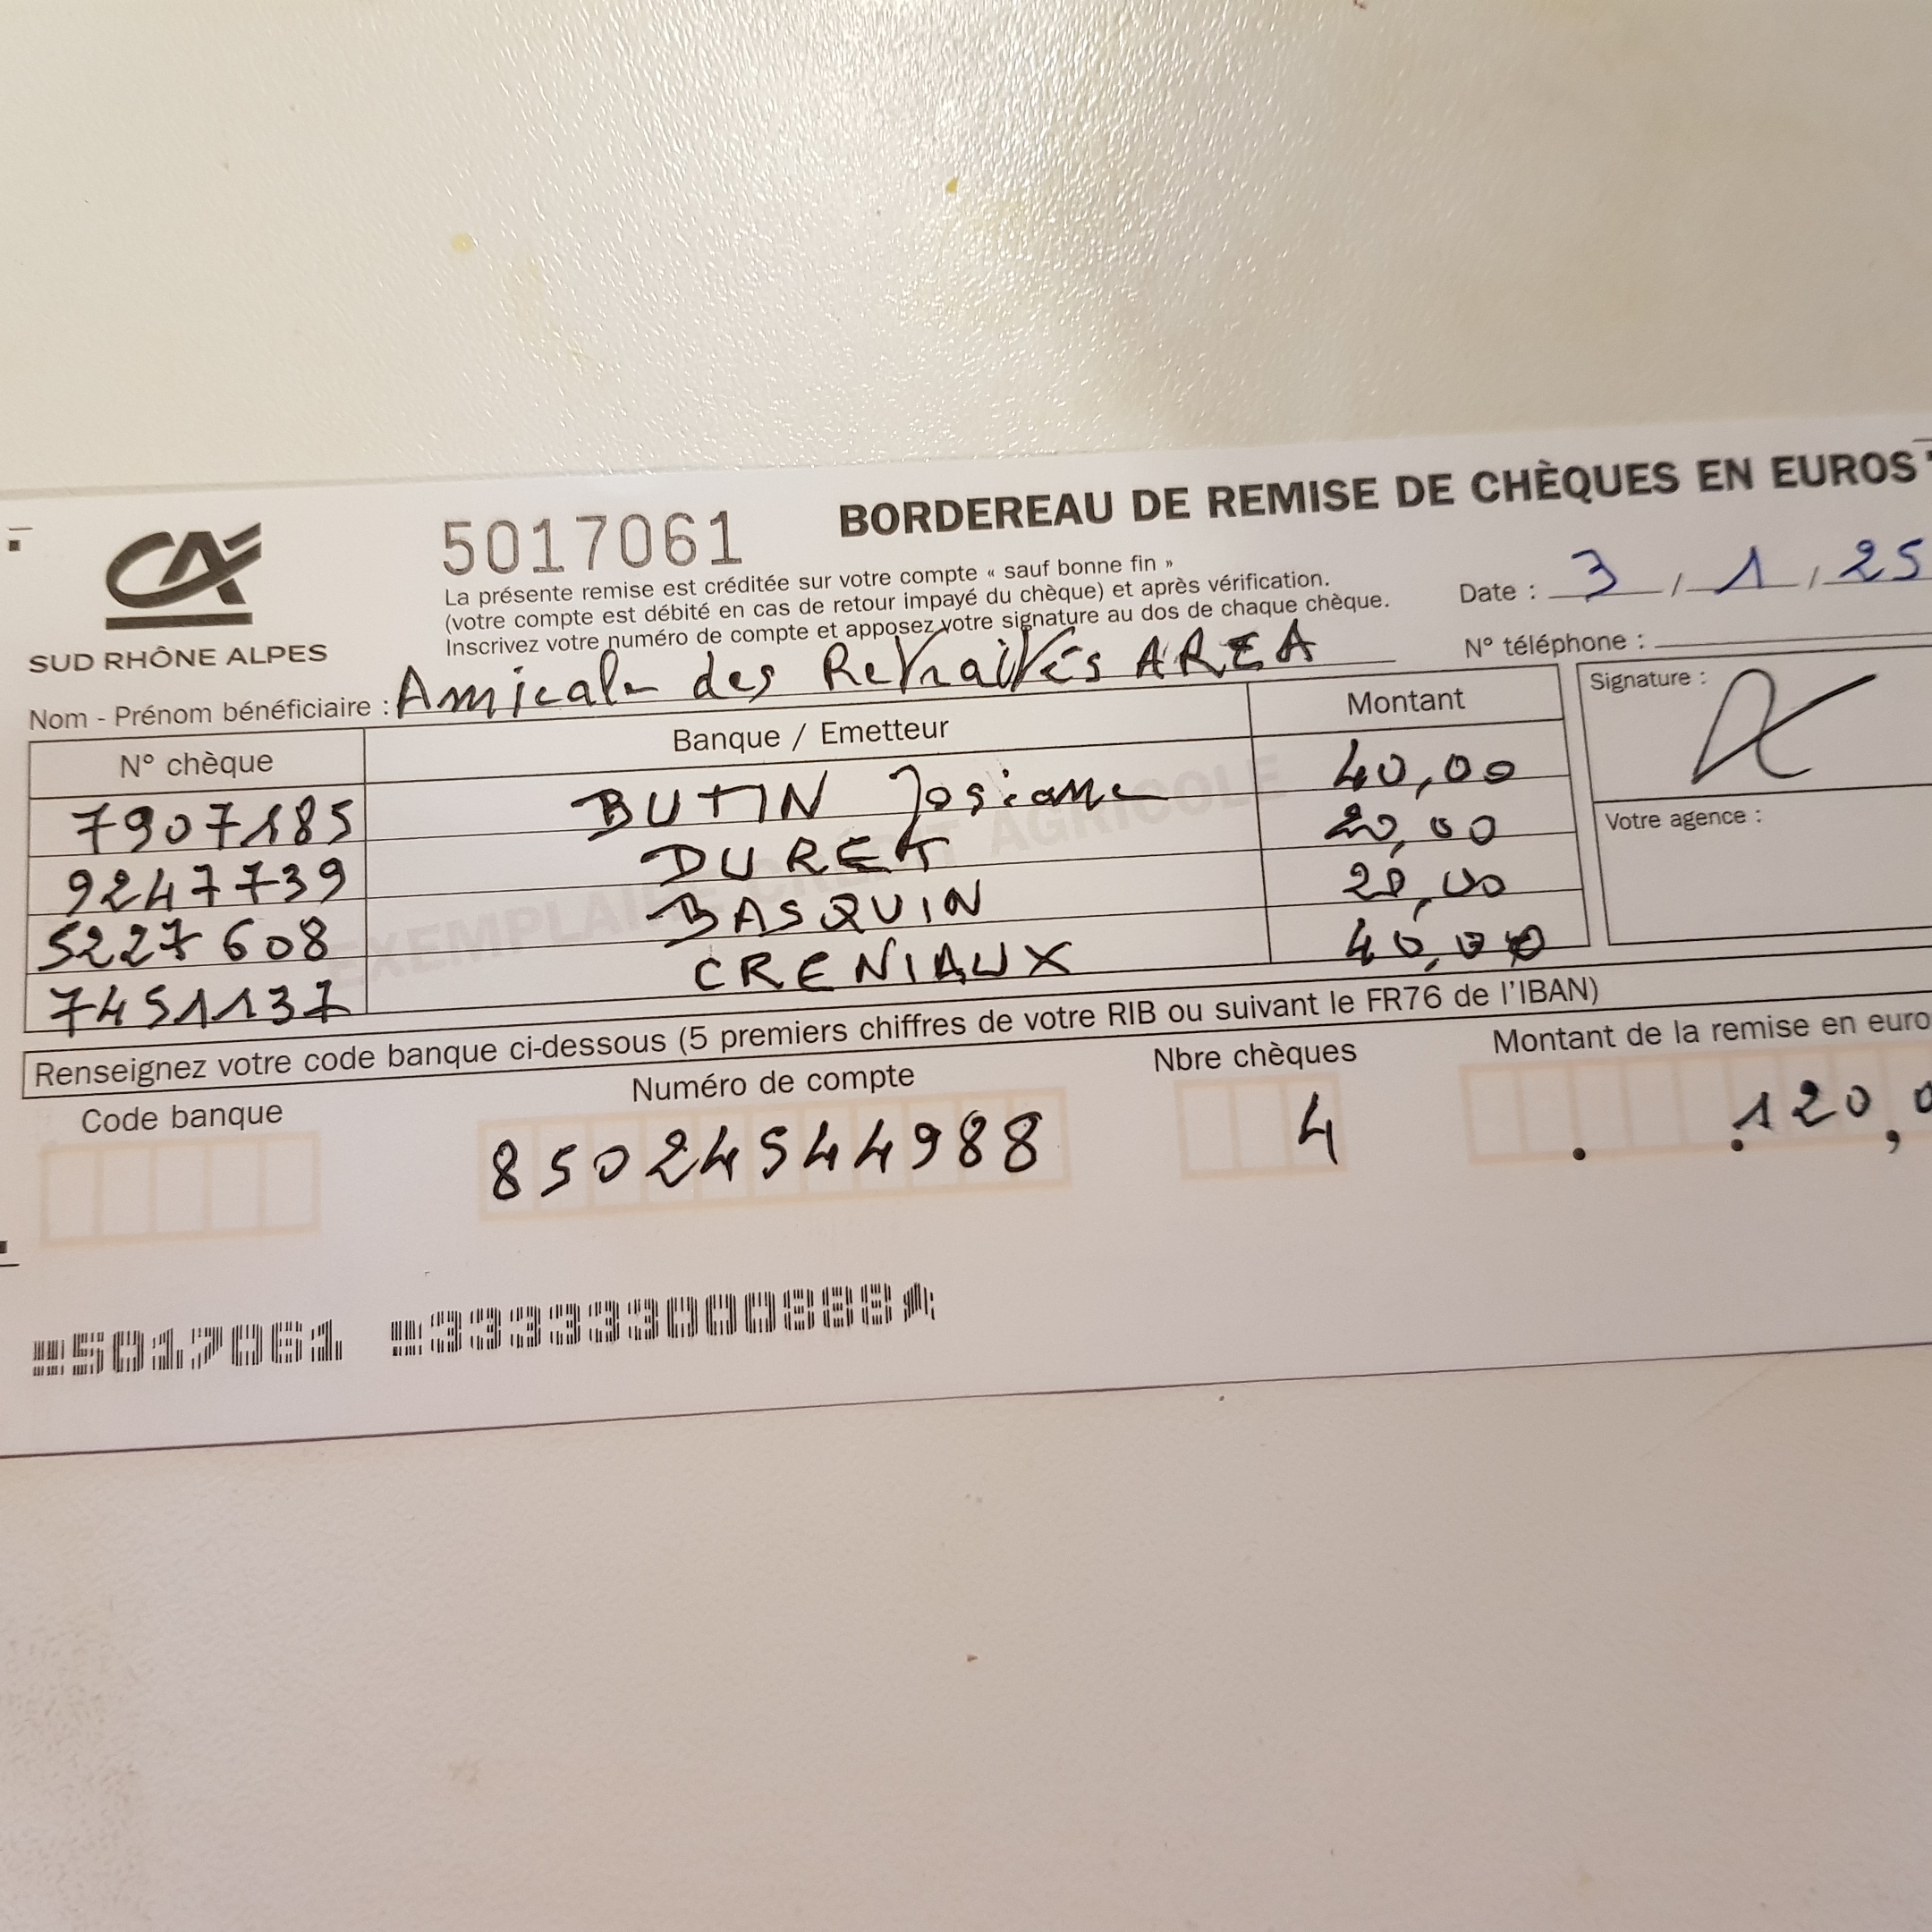 CA
SUD RHÔNE ALPES
5017061
BORDEREAU DE REMISE DE CHÈQUES EN EUROS
La présente remise est créditée sur votre compte « sauf bonne fin »
(votre compte est débité en cas de retour impayé du chèque) et après vérification.
Inscrivez votre numéro de compte et apposez votre signature au dos de chaque chèque.
Date : 3 / 1 / 25
N° téléphone :
Nom - Prénom bénéficiaire : Amicale des Retraités AREA
Signature :
N° chèque Banque / Emetteur Montant
7907185 BUTIN Josiane 40,00
9247739 DURET 20,00
5227608 BASQUIN 20,00
7451137 CRENIAUX 40,00
Votre agence :
EXEMPLAIRE CRÉDIT AGRICOLE
Renseignez votre code banque ci-dessous (5 premiers chiffres de votre RIB ou suivant le FR76 de l'IBAN)
Code banque Numéro de compte Nbre chèques Montant de la remise en euro
85024544988 4 120,0
5017061 333333000888